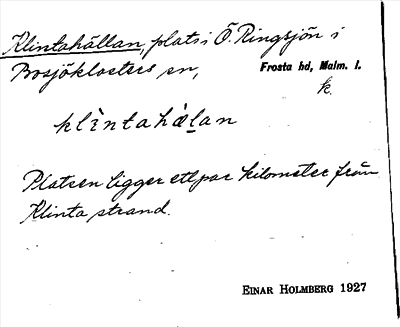 Klintahällan, plats i Ö. Ringsjön i
Bosjöklosters sn, Frosta hd, Malm. l.
k.
klìntahæ̀lan
Platsen ligger ett par kilometer från
Klinta strand.
EINAR HOLMBERG 1927